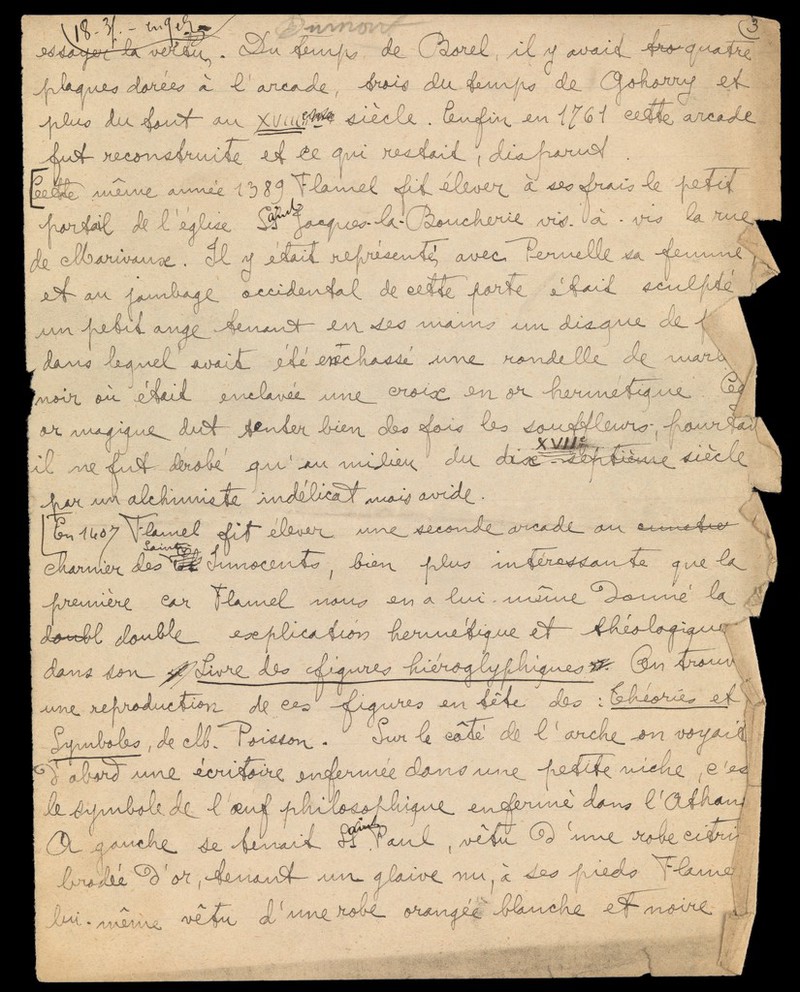 18-31. - 3
Dumont
essayer la vertu. Du temps de Borel, il y avait tro quatre
plaques dorées à l'arcade, trois du temps de Gohorry et
plus du tout au XVIII siècle. Enfin en 1761 cette arcade
fut reconstruite et ce qui restait, disparut.
[Cette même année 1389 Flamel fit élever à ses frais le petit
portail de l'église Saint Jacques-la-Boucherie vis-à-vis la rue
de Marivaux. Il y était représenté, avec Pernelle sa femme,
et au jambage occidental de cette porte était sculpté
un petit ange tenant en ses mains un disque de
dans lequel avait été enchassé une rondelle de mar
noir où était enclavée une croix en or hermétique
or magique dut tenter bien des fois les souffleurs, pourtan
il ne fut dérobé qu'au milieu du dix-septième XVIIe siècle
par un alchimiste indélicat mais avide.
[En 1407 Flamel fit élever une seconde arcade au cimetie
charnier des Saints Innocents, bien plus intéressante que la
première car Flamel nous en a lui-même Donné la
doubl double explication hermétique et théologique
dans son Livre des figures hiéroglyphiques. On trouv
une reproduction de ces figures en tête des : Théories et
Symboles, de M. Poisson. Sur le côté de l'arche on voyait
D'abord une écritoire enfermée dans une petite niche, c'es
le symbole de l'œuf philosophique enfermé dans l'Athan
A gauche se tenait Saint Paul, vêtu D'une robe citri
brodée D'or, tenant un glaive nu, à ses pieds Flame
lui-même vêtu d'une robe orangée blanche et noire